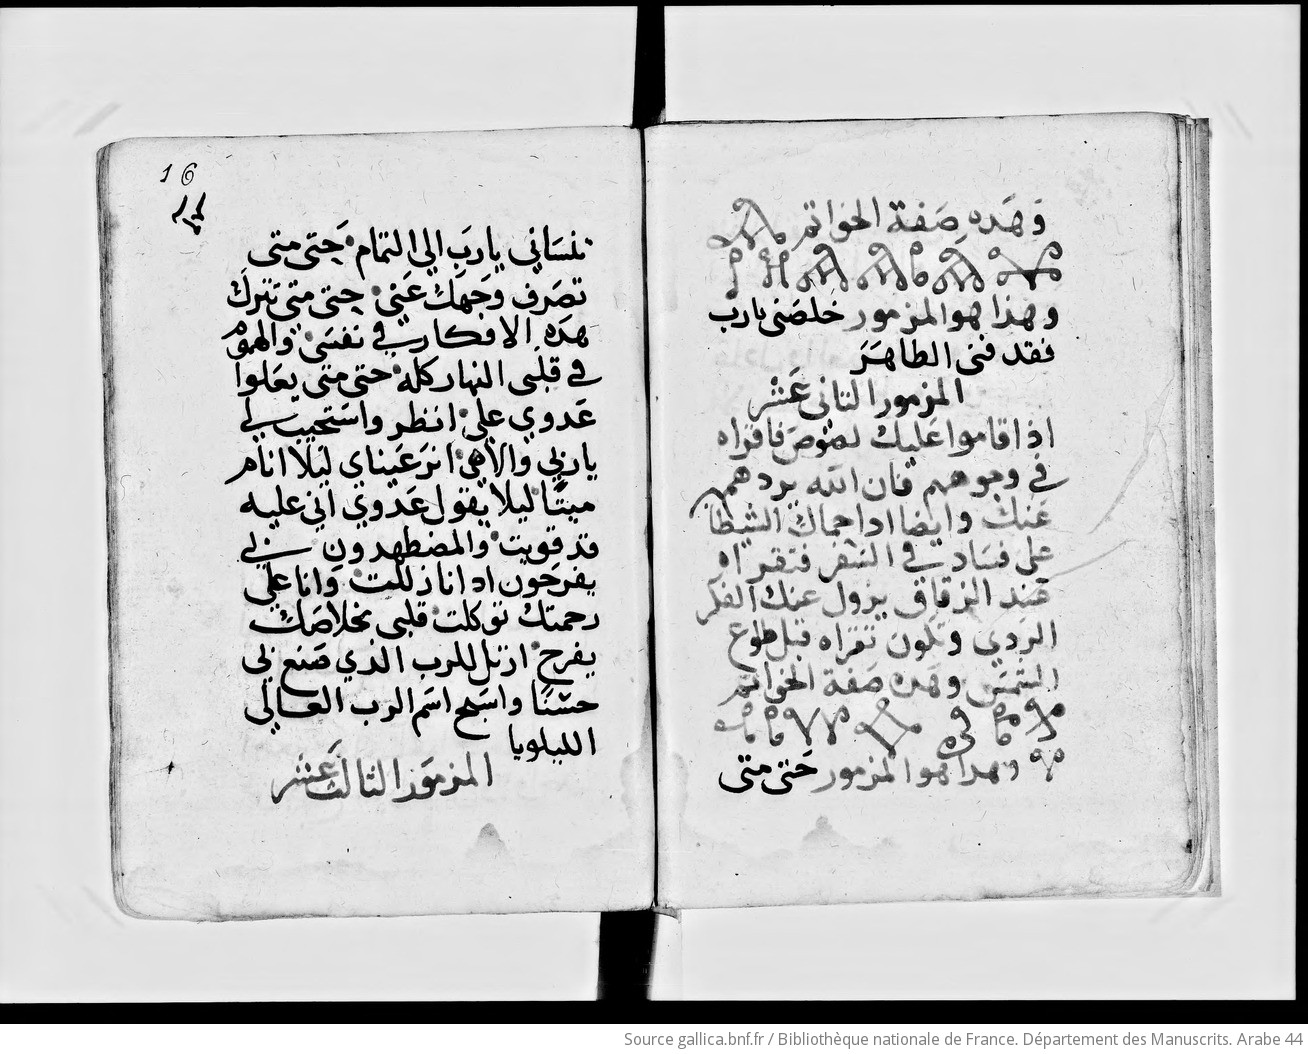 وَهَده صَفة الخواتم
وهذا هو المزمور خلصَنى يارب
فقد فنى الطاهَرَ
المزمور التانى عَشر
اذا قاموا عَليك لصَوصَ فاقراه
فى وجوههم فان الله يردهم
عَنك وايضا اداحماك الشيطا
على فسَاد فى السَفر فتقراه
عَند الزقاق يزول عنك الفكر
الردى وتكون تقراه قبل طلوع
الشمسَ وهَده صَفة الخواتم
وهدا هو المزمور حَتى متى
16
تنسَاني يارَب الي التمام حَتى متى
تصَرف وجَهك عَني حتى متى تترك
هَده الافكار في نفسَي والهموَم
في قلبى النهار كله حتى متى يعَلوا
عَدوي علي انظر واسَتجيب لي
ياربي والاهي انرعَيناي ليلا انام
ميتًا ليلا يقول عَدوي اني عليه
قد قويت والمضطهدون لي
يفرحَون ادا انا زللت وانا علي
رحمتك توكلت قلبى بخلاصَك
يفرح ارتل للرب الدي صَنع لي
حسَنًا واسَبح اسَم الرب العالي
الليلويا
المزموَر التالت عَشر
Source gallica.bnf.fr / Bibliothèque nationale de France. Département des Manuscrits. Arabe 44